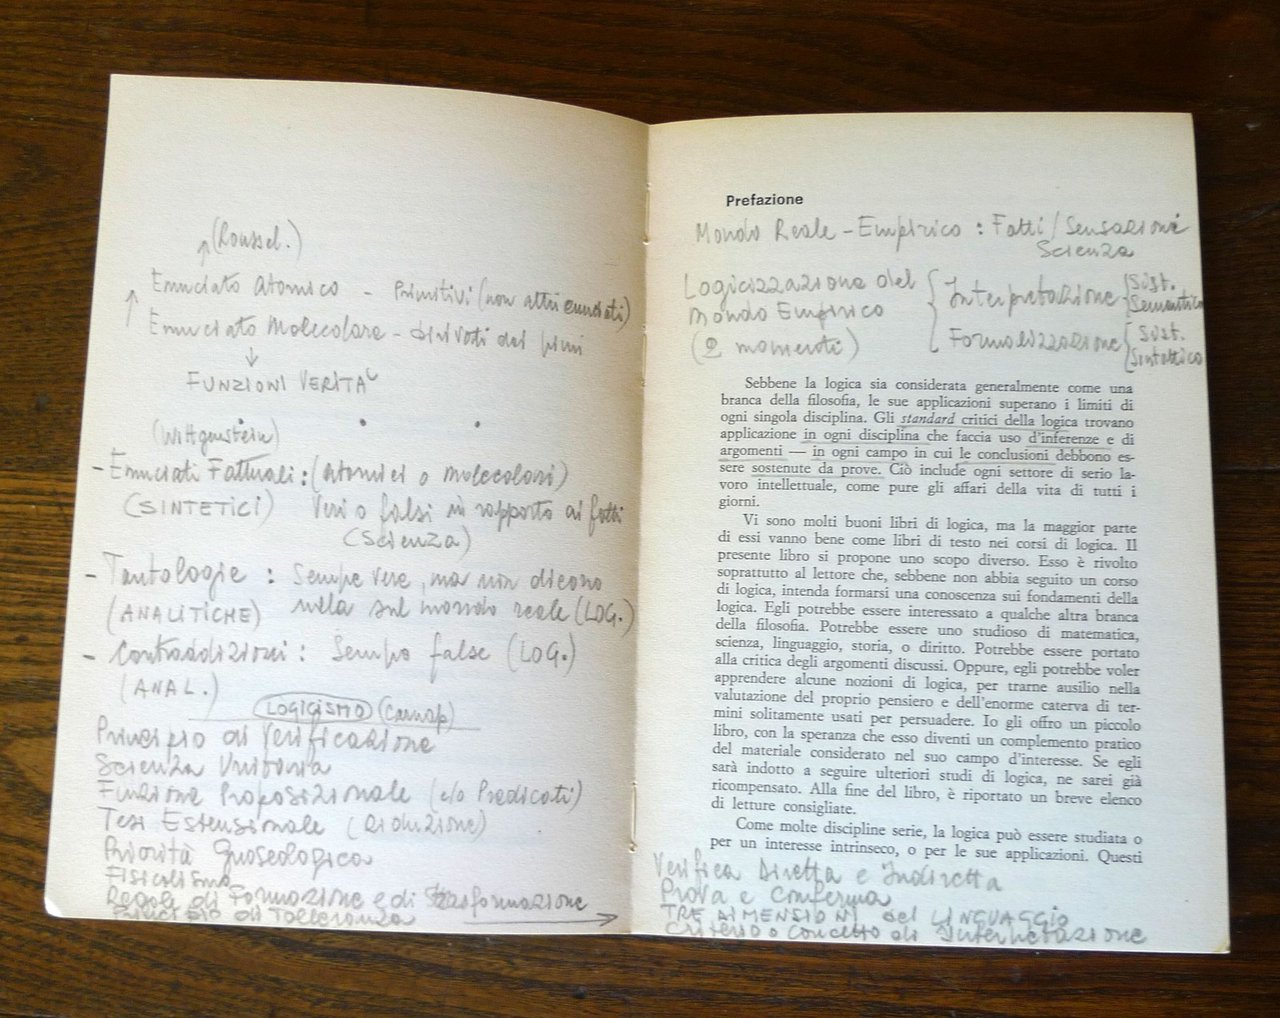 (Roussel.)
Enunciato Atomico - Primitivi (non altri enunciati)
Enunciato Molecolare - derivati dai primi
FUNZIONI VERITÀ
(Wittgenstein)
- Enunciati Fattuali: (Atomici o molecolari)
(SINTETICI) Veri o falsi in rapporto ai fatti
(Scienza)
- Tautologie : Sempre vere, ma non dicono
(ANALITICHE) nulla sul mondo reale (LOG.)
- Contraddizioni: Sempre false (LOG.)
(ANAL.)
LOGICISMO (Carnap)
Principio di Verificazione
Scienza Unitaria
Funzione Proposizionale (e/o Predicati)
Tesi Estensionale (Riduzione)
Priorità Gnoseologica
Fisicalismo
Regole di Formazione e di trasformazione
Principio di Tolleranza
Prefazione
Mondo Reale - Empirico : Fatti / Sensazioni
Scienza
Logicizzazione del { Interpretazione { Sist. Semantico
Mondo Empirico
(2 momenti) { Formalizzazione { Sist. Sintattico
Sebbene la logica sia considerata generalmente come una
branca della filosofia, le sue applicazioni superano i limiti di
ogni singola disciplina. Gli standard critici della logica trovano
applicazione in ogni disciplina che faccia uso d'inferenze e di
argomenti — in ogni campo in cui le conclusioni debbono es-
sere sostenute da prove. Ciò include ogni settore di serio la-
voro intellettuale, come pure gli affari della vita di tutti i
giorni.
Vi sono molti buoni libri di logica, ma la maggior parte
di essi vanno bene come libri di testo nei corsi di logica. Il
presente libro si propone uno scopo diverso. Esso è rivolto
soprattutto al lettore che, sebbene non abbia seguito un corso
di logica, intenda formarsi una conoscenza sui fondamenti della
logica. Egli potrebbe essere interessato a qualche altra branca
della filosofia. Potrebbe essere uno studioso di matematica,
scienza, linguaggio, storia, o diritto. Potrebbe essere portato
alla critica degli argomenti discussi. Oppure, egli potrebbe voler
apprendere alcune nozioni di logica, per trarne ausilio nella
valutazione del proprio pensiero e dell'enorme caterva di ter-
mini solitamente usati per persuadere. Io gli offro un piccolo
libro, con la speranza che esso diventi un complemento pratico
del materiale considerato nel suo campo d'interesse. Se egli
sarà indotto a seguire ulteriori studi di logica, ne sarei già
ricompensato. Alla fine del libro, è riportato un breve elenco
di letture consigliate.
Come molte discipline serie, la logica può essere studiata o
per un interesse intrinseco, o per le sue applicazioni. Questi
Verifica Diretta e Indiretta
Prova e Conferma
TRE DIMENSIONI del LINGUAGGIO
Criterio o concetto di Interpretazione